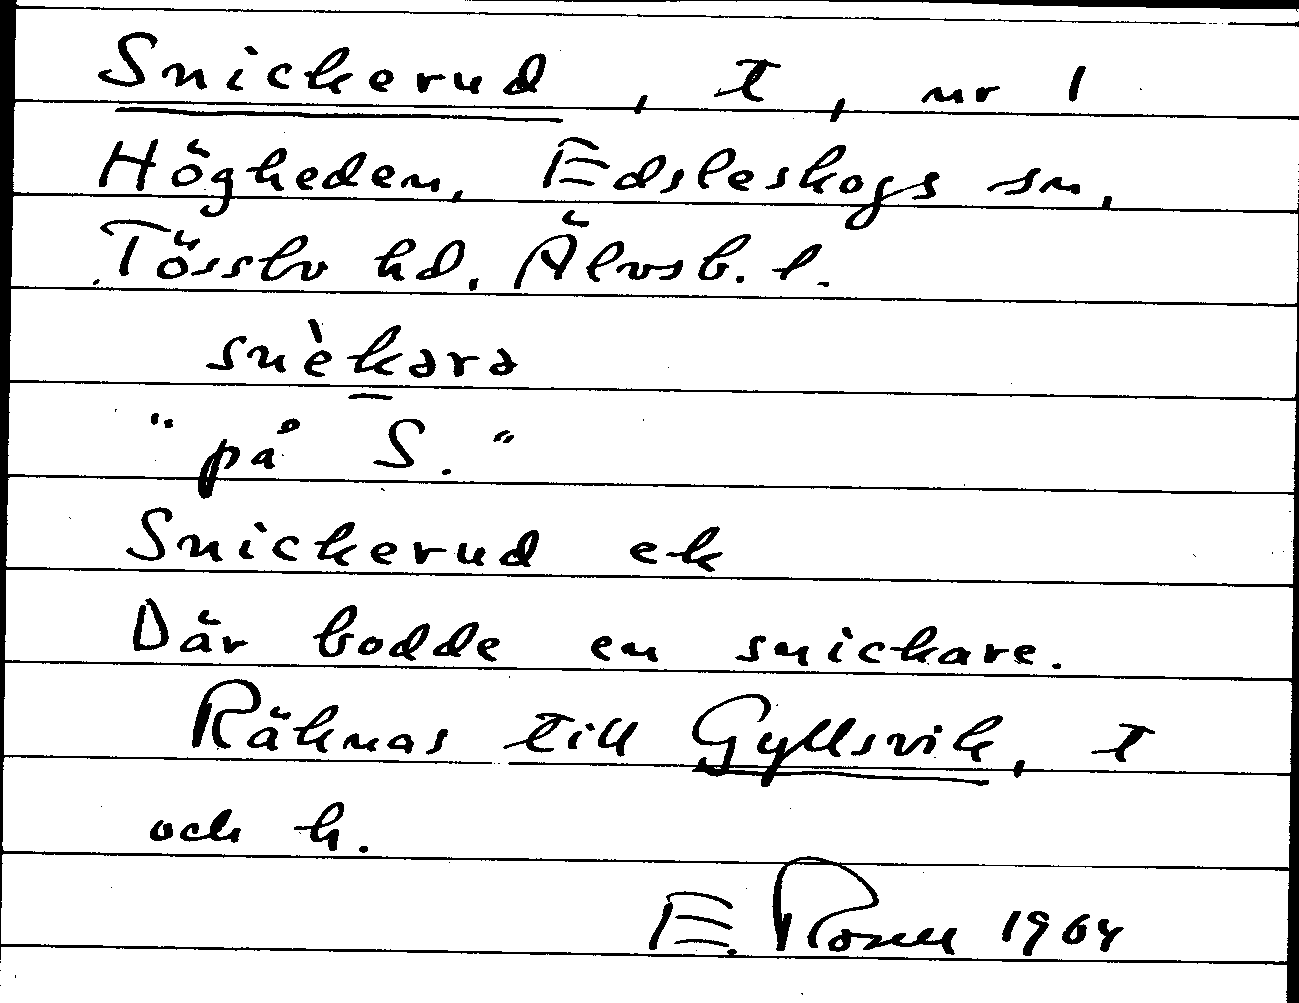 Snickerud, t, nr 1
Högheden, Edsleskogs sn,
Tössbo hd, Älvsb. l.
snèkərə
"på S."
Snickerud ek
Där bodde en snickare.
Räknas till Gyllsvik, t
och h.
E. Rosell 1964